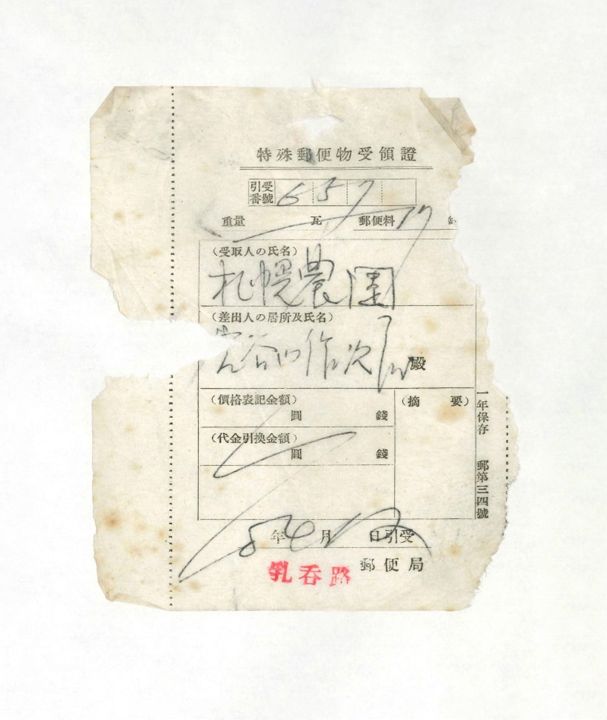 特殊郵便物受領證
引受番號 657
重量 瓦 郵便料 17
(受取人の氏名)
札幌農園
(差出人の居所及氏名)
谷口作次郎 殿
(價格表記金額)
圓 錢
(摘 要)
(代金引換金額)
圓 錢
年 月 日引受
乳呑路 郵便局
一年保存 郵第三四號